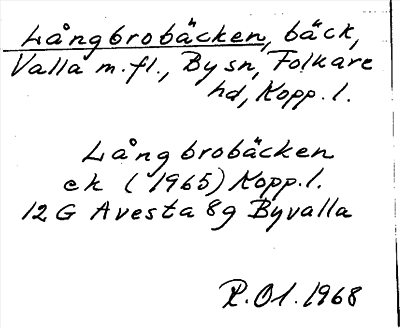 Långbrobäcken, bäck,
Valla m.fl., By sn, Folkare
hd, Kopp.l.
Långbrobäcken
ek (1965) Kopp.l.
12 G Avesta 8g Byvalla
P.Ol.1968